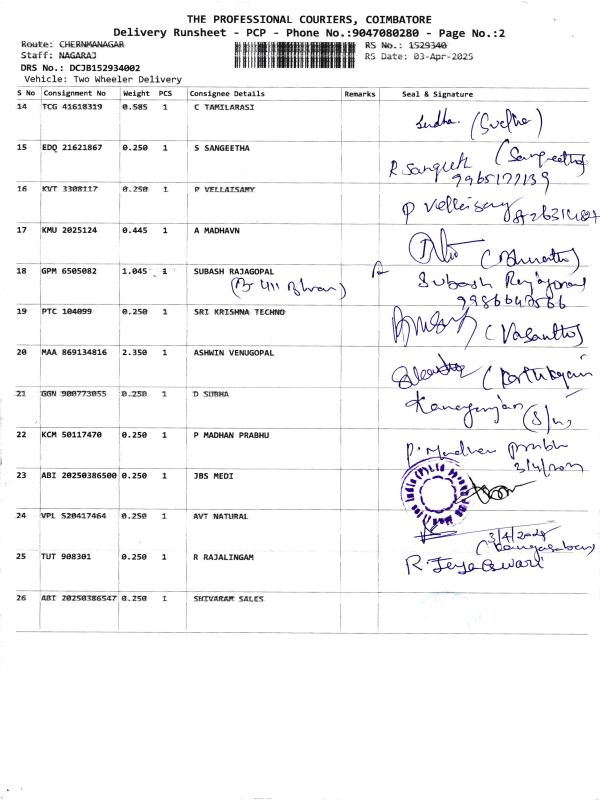 THE PROFESSIONAL COURIERS, COIMBATORE
Delivery Runsheet - PCP - Phone No.:9047080280 - Page No.:2
Route: CHERNMANAGAR
RS No.: 1529340
Staff: NAGARAJ
RS Date: 03-Apr-2025
DRS No.: DCJB152934002
Vehicle: Two Wheeler Delivery
S No Consignment No Weight PCS Consignee Details Remarks Seal & Signature
14 TCG 41618319 0.585 1 C TAMILARASI
Sudha. (Sudha)
15 EDQ 21621867 0.250 1 S SANGEETHA
(Sangeetha)
R Sangeeth
9965177139
16 KVT 3308117 0.250 1 P VELLAISAMY
P Vellaisamy
17 KMU 2025124 0.445 1 A MADHAVN
(Bharath)
18 GPM 6505082 1.045 1 SUBASH RAJAGOPAL
Subash Rajagopal
19 PTC 104099 0.250 1 SRI KRISHNA TECHNO
(Vasanth)
20 MAA 869134816 2.350 1 ASHWIN VENUGOPAL
21 GGN 900773055 0.250 1 D SUBHA
(S/w)
22 KCM 50117470 0.250 1 P MADHAN PRABHU
P. Madhan Prabhu
3/4/2025
23 ABI 20250386500 0.250 1 JBS MEDI
24 VPL 520417464 0.250 1 AVT NATURAL
3/4/2025
25 TUT 908301 0.250 1 R RAJALINGAM
R. Jeyaeswari
26 ABI 20250386547 0.250 1 SHIVARAM SALES